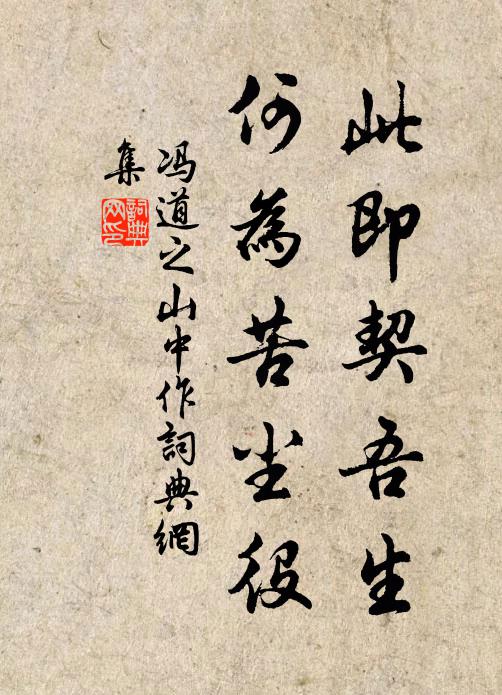 此即契吾生
何為苦尘役
冯道之山中作詞典網
集
詞典網印